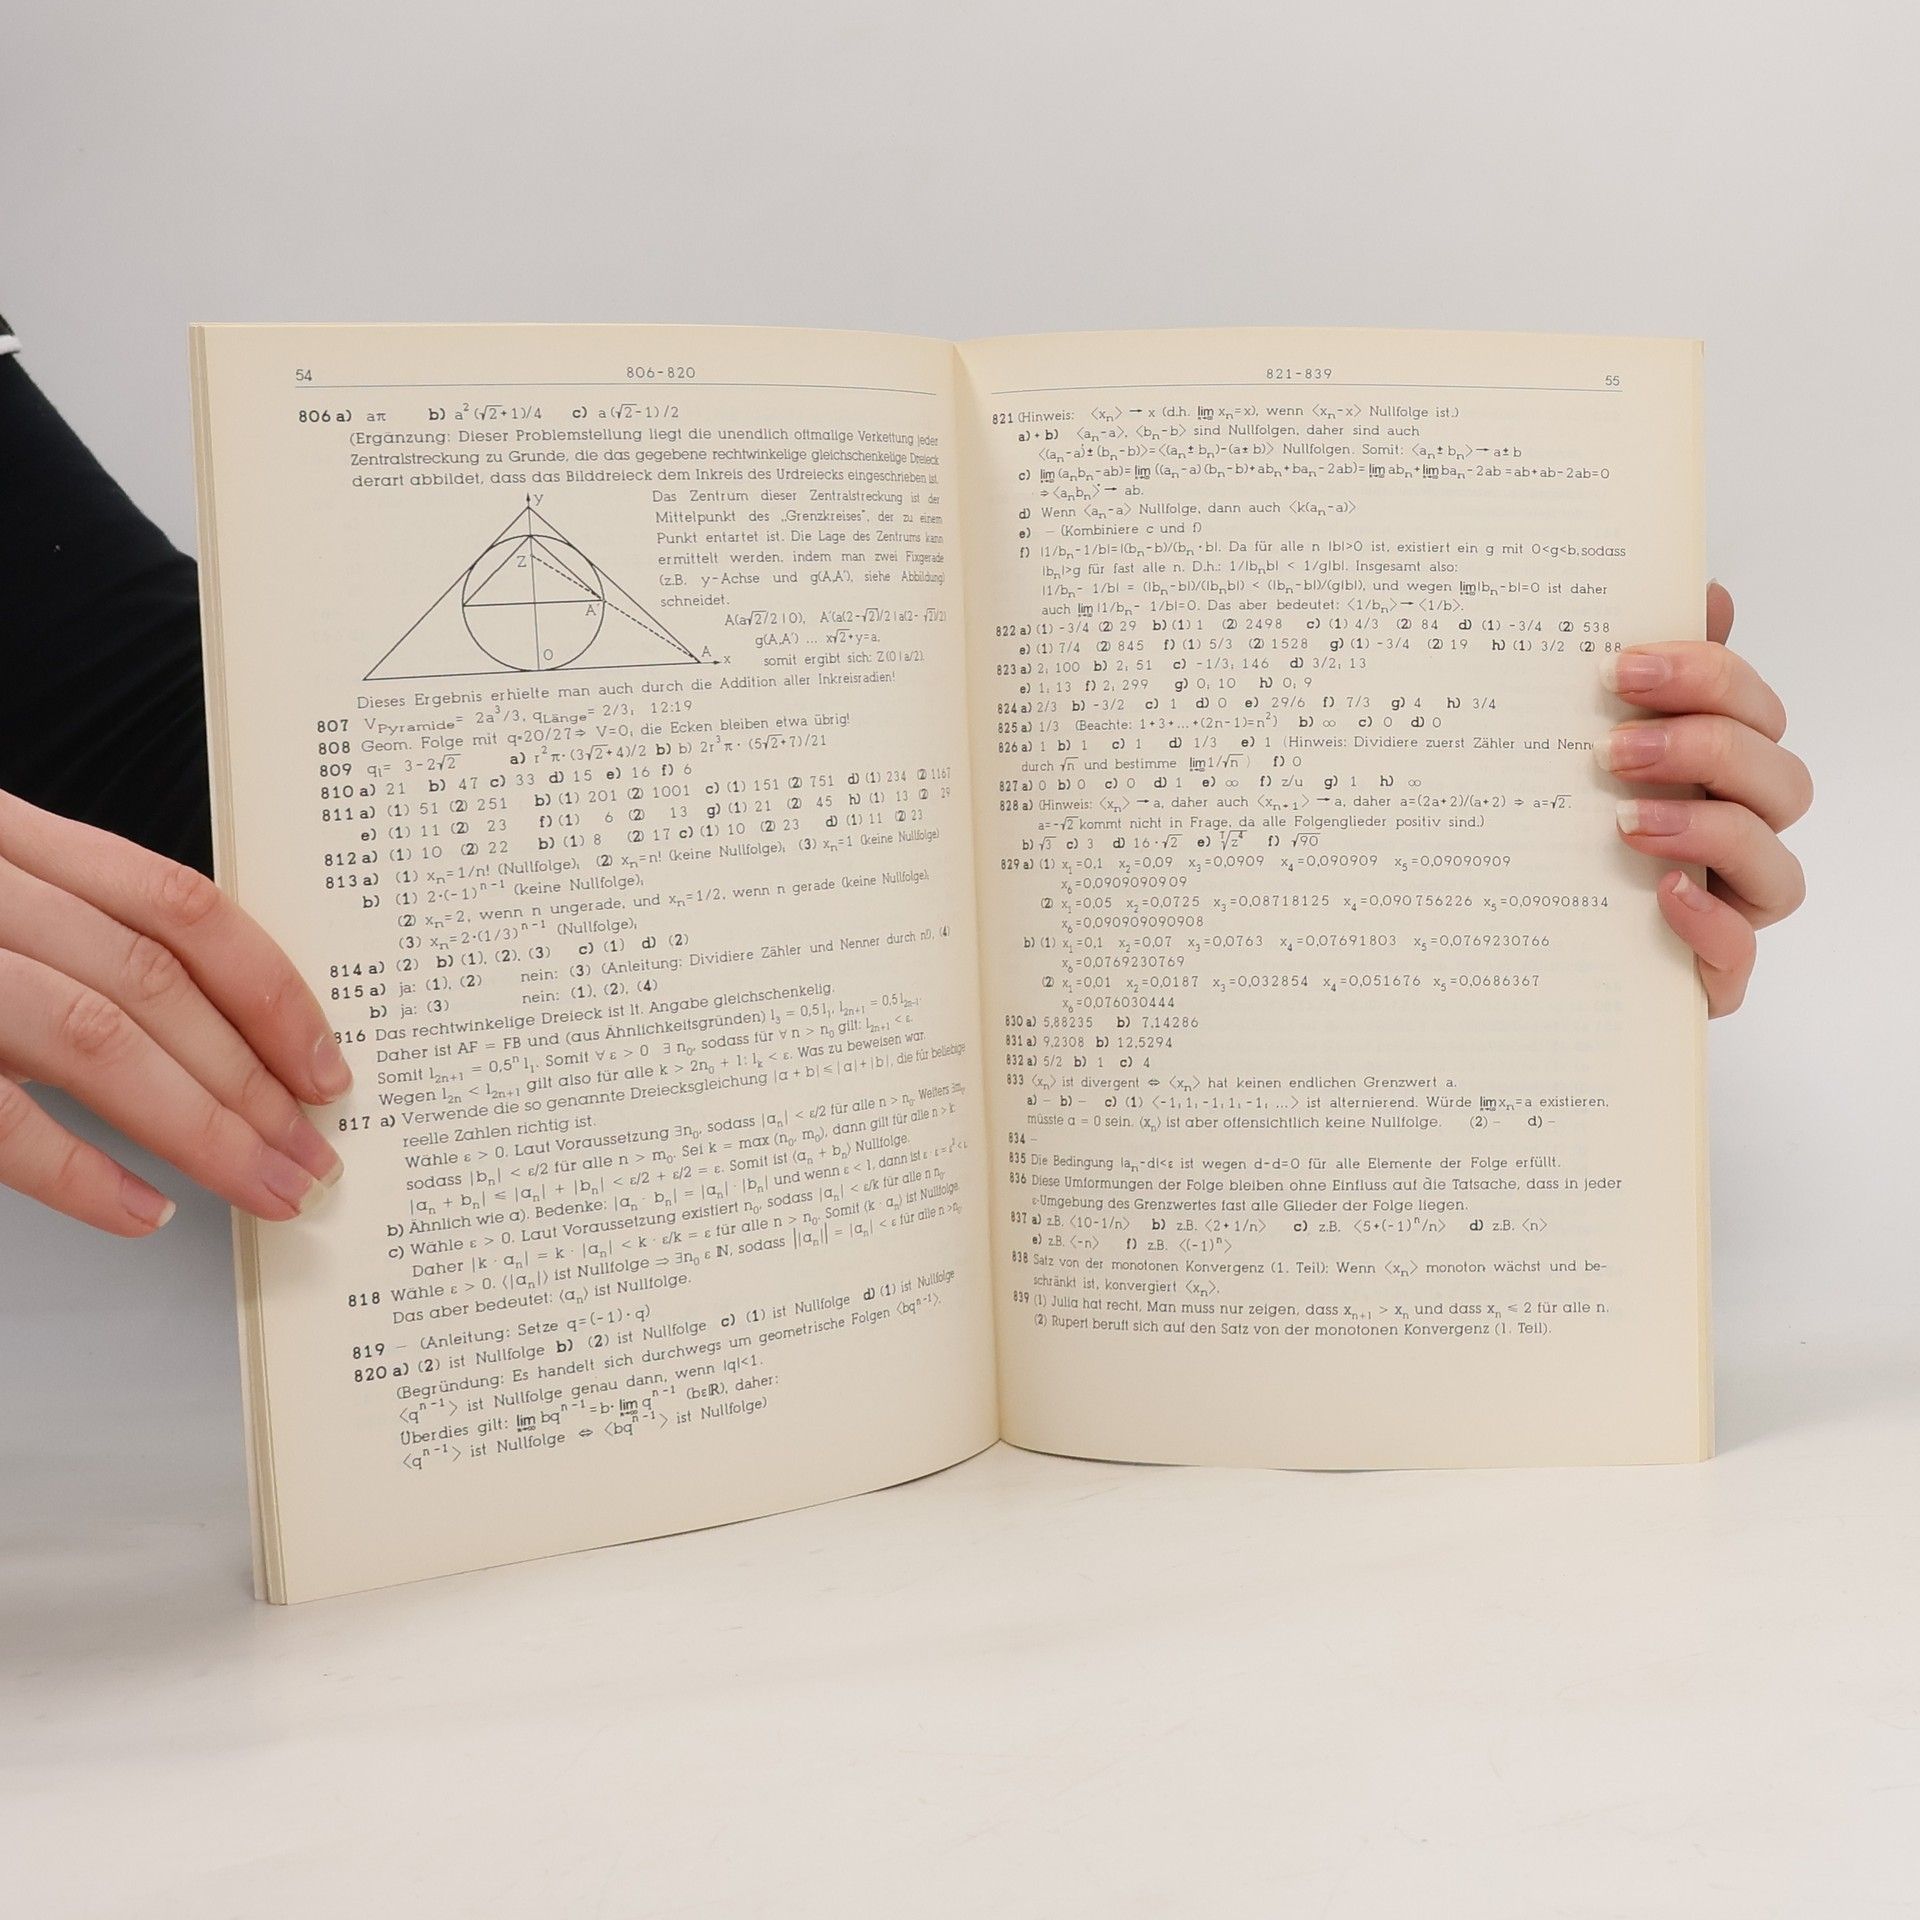 54
806-820
806 a) aπ b) a²(√2+1)/4 c) a(√2-1)/2
(Ergänzung: Dieser Problemstellung liegt die unendlich oftmalige Verkettung jeder
Zentralstreckung zu Grunde, die das gegebene rechtwinkelige gleichschenkelige Dreieck
derart abbildet, dass das Bilddreieck dem Inkreis des Urdreiecks eingeschrieben ist.
y
Z
A'
O
A
x
Das Zentrum dieser Zentralstreckung ist der
Mittelpunkt des „Grenzkreises", der zu einem
Punkt entartet ist. Die Lage des Zentrums kann
ermittelt werden, indem man zwei Fixgerade
(z.B. y-Achse und g(A,A'), siehe Abbildung)
schneidet.
A(a√2/2|0), A'(a(2-√2)/2|a(2-√2)/2)
g(A,A') ... x√2+y=a,
somit ergibt sich: Z(0|a/2).
Dieses Ergebnis erhielte man auch durch die Addition aller Inkreisradien!
807 V_Pyramide= 2a³/3, q_Länge= 2/3; 12:19
808 Geom. Folge mit q=20/27⇒ V=0; die Ecken bleiben etwa übrig!
809 qᵢ= 3-2√2 a) r²π·(3√2+4)/2 b) b) 2r³π·(5√2+7)/21
810 a) 21 b) 47 c) 33 d) 15 e) 16 f) 6
811 a) (1) 51 (2) 251 b) (1) 201 (2) 1001 c) (1) 151 (2) 751 d) (1) 234 (2) 1167
e) (1) 11 (2) 23 f) (1) 6 (2) 13 g) (1) 21 (2) 45 h) (1) 13 (2) 29
812 a) (1) 10 (2) 22 b) (1) 8 (2) 17 c) (1) 10 (2) 23 d) (1) 11 (2) 23
813 a) (1) xₙ=1/n! (Nullfolge); (2) xₙ=n! (keine Nullfolge); (3) xₙ=1 (keine Nullfolge)
b) (1) 2·(-1)ⁿ⁻¹ (keine Nullfolge);
(2) xₙ=2, wenn n ungerade, und xₙ=1/2, wenn n gerade (keine Nullfolge);
(3) xₙ=2·(1/3)ⁿ⁻¹ (Nullfolge);
814 a) (2) b) (1), (2), (3) c) (1) d) (2)
815 a) ja: (1), (2) nein: (3) (Anleitung: Dividiere Zähler und Nenner durch n!), (4)
b) ja: (3) nein: (1), (2), (4)
816 Das rechtwinkelige Dreieck ist lt. Angabe gleichschenkelig.
Daher ist AF = FB und (aus Ähnlichkeitsgründen) l₃ = 0,5 l₁, l₂ₙ₊₁ = 0,5 l₂ₙ₋₁.
Somit l₂ₙ₊₁ = 0,5ⁿ l₁. Somit ∀ ε > 0 ∃ n₀, sodass für ∀ n > n₀ gilt: l₂ₙ₊₁ < ε.
Wegen l₂ₙ < l₂ₙ₊₁ gilt also für alle k > 2n₀ + 1: lₖ < ε. Was zu beweisen war.
817 a) Verwende die so genannte Dreiecksgleichung |a + b| ⩽ |a| + |b|, die für beliebige
reelle Zahlen richtig ist.
Wähle ε > 0. Laut Voraussetzung ∃n₀, sodass |aₙ| < ε/2 für alle n > n₀. Weiters ∃m₀,
sodass |bₙ| < ε/2 für alle n > m₀. Sei k = max (n₀, m₀), dann gilt für alle n > k:
|aₙ + bₙ| ⩽ |aₙ| + |bₙ| < ε/2 + ε/2 = ε. Somit ist ⟨aₙ + bₙ⟩ Nullfolge.
b) Ähnlich wie a). Bedenke: |aₙ · bₙ| = |aₙ| · |bₙ| und wenn ε < 1, dann ist ε · ε = ε² < ε
c) Wähle ε > 0. Laut Voraussetzung existiert n₀, sodass |aₙ| < ε/k für alle n > n₀.
Daher |k · aₙ| = k · |aₙ| < k · ε/k = ε für alle n > n₀. Somit ⟨k · aₙ⟩ ist Nullfolge.
818 Wähle ε > 0. ⟨|aₙ|⟩ ist Nullfolge ⇒ ∃n₀ ε ℕ, sodass ||aₙ|| = |aₙ| < ε für alle n > n₀.
Das aber bedeutet: ⟨aₙ⟩ ist Nullfolge.
819 – (Anleitung: Setze q=(-1)·q)
820 a) (2) ist Nullfolge b) (2) ist Nullfolge c) (1) ist Nullfolge d) (1) ist Nullfolge
(Begründung: Es handelt sich durchwegs um geometrische Folgen ⟨bqⁿ⁻¹⟩.
⟨qⁿ⁻¹⟩ ist Nullfolge genau dann, wenn |q|<1.
Überdies gilt: lim bqⁿ⁻¹=b·lim qⁿ⁻¹ (bεℝ), daher:
⟨qⁿ⁻¹⟩ ist Nullfolge ⇔ ⟨bqⁿ⁻¹⟩ ist Nullfolge)
821-839
55
821 (Hinweis: ⟨xₙ⟩ → x (d.h. lim xₙ=x), wenn ⟨xₙ-x⟩ Nullfolge ist.)
a) + b) ⟨aₙ-a⟩, ⟨bₙ-b⟩ sind Nullfolgen, daher sind auch
⟨(aₙ-a)±(bₙ-b)⟩=⟨(aₙ±bₙ)-(a±b)⟩ Nullfolgen. Somit: ⟨aₙ±bₙ⟩→a±b
c) lim(aₙbₙ-ab)=lim((aₙ-a)(bₙ-b)+abₙ+baₙ-2ab)=lim abₙ+lim baₙ-2ab=ab+ab-2ab=0
⇒⟨aₙbₙ⟩→ ab.
d) Wenn ⟨aₙ-a⟩ Nullfolge, dann auch ⟨k(aₙ-a)⟩
e) – (Kombiniere c und f)
f) |1/bₙ-1/b|=|(bₙ-b)/(bₙ·b|. Da für alle n |b|>0 ist, existiert ein g mit 0<g<b,sodass
|bₙ|>g für fast alle n. D.h.: 1/|bₙb| < 1/g|b|. Insgesamt also:
|1/bₙ- 1/b| = (|bₙ-b|)/(|bₙb|) < (|bₙ-b|)/(g|b|), und wegen lim|bₙ-b|=0 ist daher
auch lim |1/bₙ- 1/b|=0. Das aber bedeutet: ⟨1/bₙ⟩→⟨1/b⟩.
822 a) (1) -3/4 (2) 29 b) (1) 1 (2) 2498 c) (1) 4/3 (2) 84 d) (1) -3/4 (2) 538
e) (1) 7/4 (2) 845 f) (1) 5/3 (2) 1528 g) (1) -3/4 (2) 19 h) (1) 3/2 (2) 88
823 a) 2; 100 b) 2; 51 c) -1/3; 146 d) 3/2; 13
e) 1; 13 f) 2; 299 g) 0; 10 h) 0; 9
824 a) 2/3 b) -3/2 c) 1 d) 0 e) 29/6 f) 7/3 g) 4 h) 3/4
825 a) 1/3 (Beachte: 1+3+...+(2n-1)=n²) b) ∞ c) 0 d) 0
826 a) 1 b) 1 c) 1 d) 1/3 e) 1 (Hinweis: Dividiere zuerst Zähler und Nenn
durch √n und bestimme lim 1/√n) f) 0
827 a) 0 b) 0 c) 0 d) 1 e) ∞ f) z/u g) 1 h) ∞
828 a) (Hinweis: ⟨xₙ⟩ → a, daher auch ⟨xₙ₊₁⟩ → a, daher a=(2a+2)/(a+2) ⇒ a=√2.
a=-√2 kommt nicht in Frage, da alle Folgenglieder positiv sind.)
b) √3 c) 3 d) 16·√2 e) ⁷√z⁴ f) √90
829 a) (1) x₁=0,1 x₂=0,09 x₃=0,0909 x₄=0,090909 x₅=0,09090909
x₆=0,0909090909
(2) x₁=0,05 x₂=0,0725 x₃=0,08718125 x₄=0,090756226 x₅=0,090908834
x₆=0,090909090908
b) (1) x₁=0,1 x₂=0,07 x₃=0,0763 x₄=0,07691803 x₅=0,0769230766
x₆=0,0769230769
(2) x₁=0,01 x₂=0,0187 x₃=0,032854 x₄=0,051676 x₅=0,0686367
x₆=0,076030444
830 a) 5,88235 b) 7,14286
831 a) 9,2308 b) 12,5294
832 a) 5/2 b) 1 c) 4
833 ⟨xₙ⟩ ist divergent ⇔ ⟨xₙ⟩ hat keinen endlichen Grenzwert a.
a) – b) – c) (1) ⟨-1; 1; -1; 1; -1; ...⟩ ist alternierend. Würde lim xₙ=a existieren,
müsste a = 0 sein. ⟨xₙ⟩ ist aber offensichtlich keine Nullfolge. (2) – d) –
834 –
835 Die Bedingung |aₙ-d|<ε ist wegen d-d=0 für alle Elemente der Folge erfüllt.
836 Diese Umformungen der Folge bleiben ohne Einfluss auf die Tatsache, dass in jeder
ε-Umgebung des Grenzwertes fast alle Glieder der Folge liegen.
837 a) z.B. ⟨10-1/n⟩ b) z.B. ⟨2+1/n⟩ c) z.B. ⟨5+(-1)ⁿ/n⟩ d) z.B. ⟨n⟩
e) z.B. ⟨-n⟩ f) z.B. ⟨(-1)ⁿ⟩
838 Satz von der monotonen Konvergenz (1. Teil): Wenn ⟨xₙ⟩ monoton wächst und be-
schränkt ist, konvergiert ⟨xₙ⟩.
839 (1) Julia hat recht. Man muss nur zeigen, dass xₙ₊₁ > xₙ und dass xₙ ⩽ 2 für alle n.
(2) Rupert beruft sich auf den Satz von der monotonen Konvergenz (1. Teil).